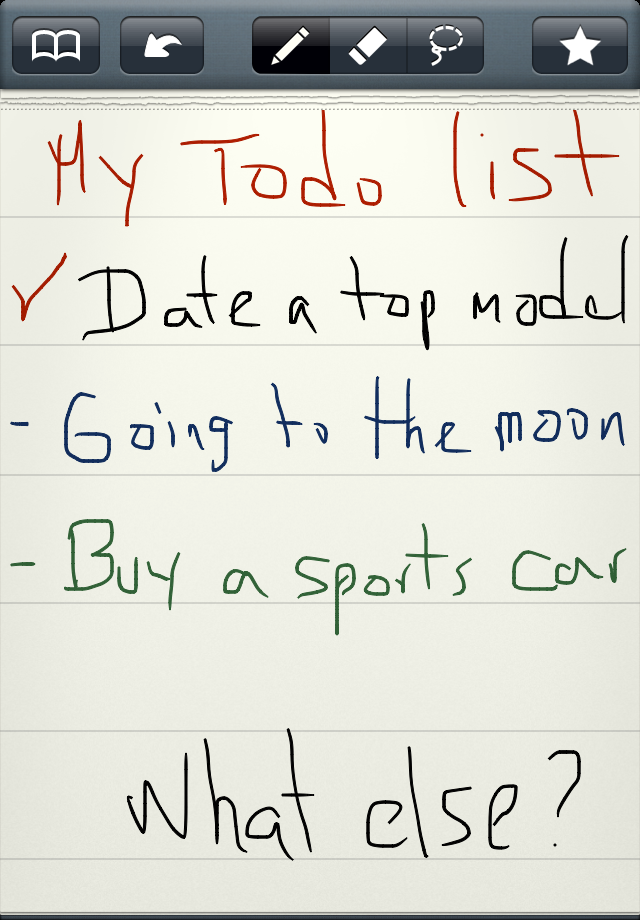 My Todo list
✓ Date a top model
- Going to the moon
- Buy a sports car
What else?